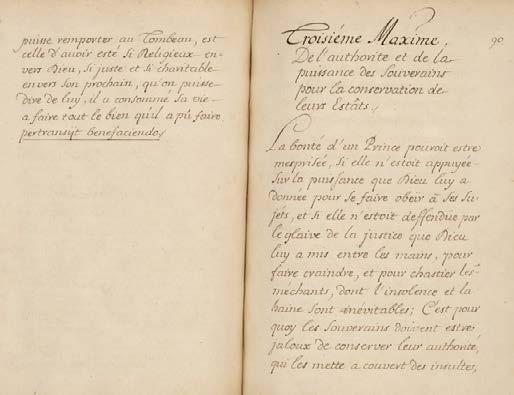 puisse remporter au Tombeau, est
celle d'avoir esté si Religieux en-
vers Dieu, si juste et si charitable
envers son prochain, qu'on puisse
dire de luy, il a consommé sa vie
a faire tout le bien qu'il a pû faire
pertransijt benefaciendo
Troisiéme Maxime.
90
De l'authorité et de la
puissance des Souverains
pour la conservation de
leurs Estats.
La bonté d'un Prince pouroit estre
mesprisée, si elle n'estoit appuyée
sur la puissance que Dieu luy a
donnée pour se faire obeir à ses su-
jéts, et si elle n'estoit deffendue par
le glaive de la justice que Dieu
luy a mis entre les mains, pour
faire craindre, et pour chastier les
méchants, dont l'insolence et la
haine sont inévitables; C'est pour
quoy les Souverains doivent estre
jaloux de conserver leur authorité,
qui les mette a couvert des insultes,